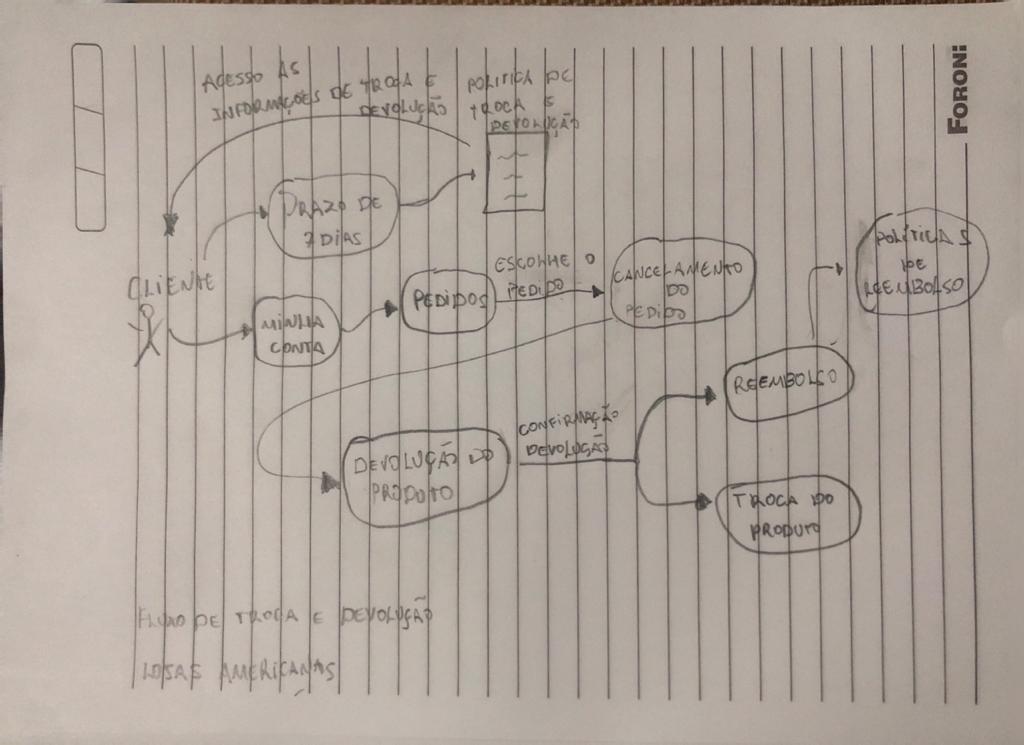 FORONI
ACESSO AS
INFORMAÇÕES DE TROCA E
DEVOLUÇÃO
POLITICA DE
TROCA E
DEVOLUÇÃO
PRAZO DE
7 DIAS
CLIENTE
MINHA
CONTA
PEDIDOS
ESCOLHE O
PEDIDO
CANCELAMENTO
DO
PEDIDO
POLÍTICAS
DE
REEMBOLSO
REEMBOLSO
CONFIRMAÇÃO
DEVOLUÇÃO
DEVOLUÇÃO DO
PRODUTO
TROCA DO
PRODUTO
FLUXO DE TROCA E DEVOLUÇÃO
LOJAS AMERICANAS